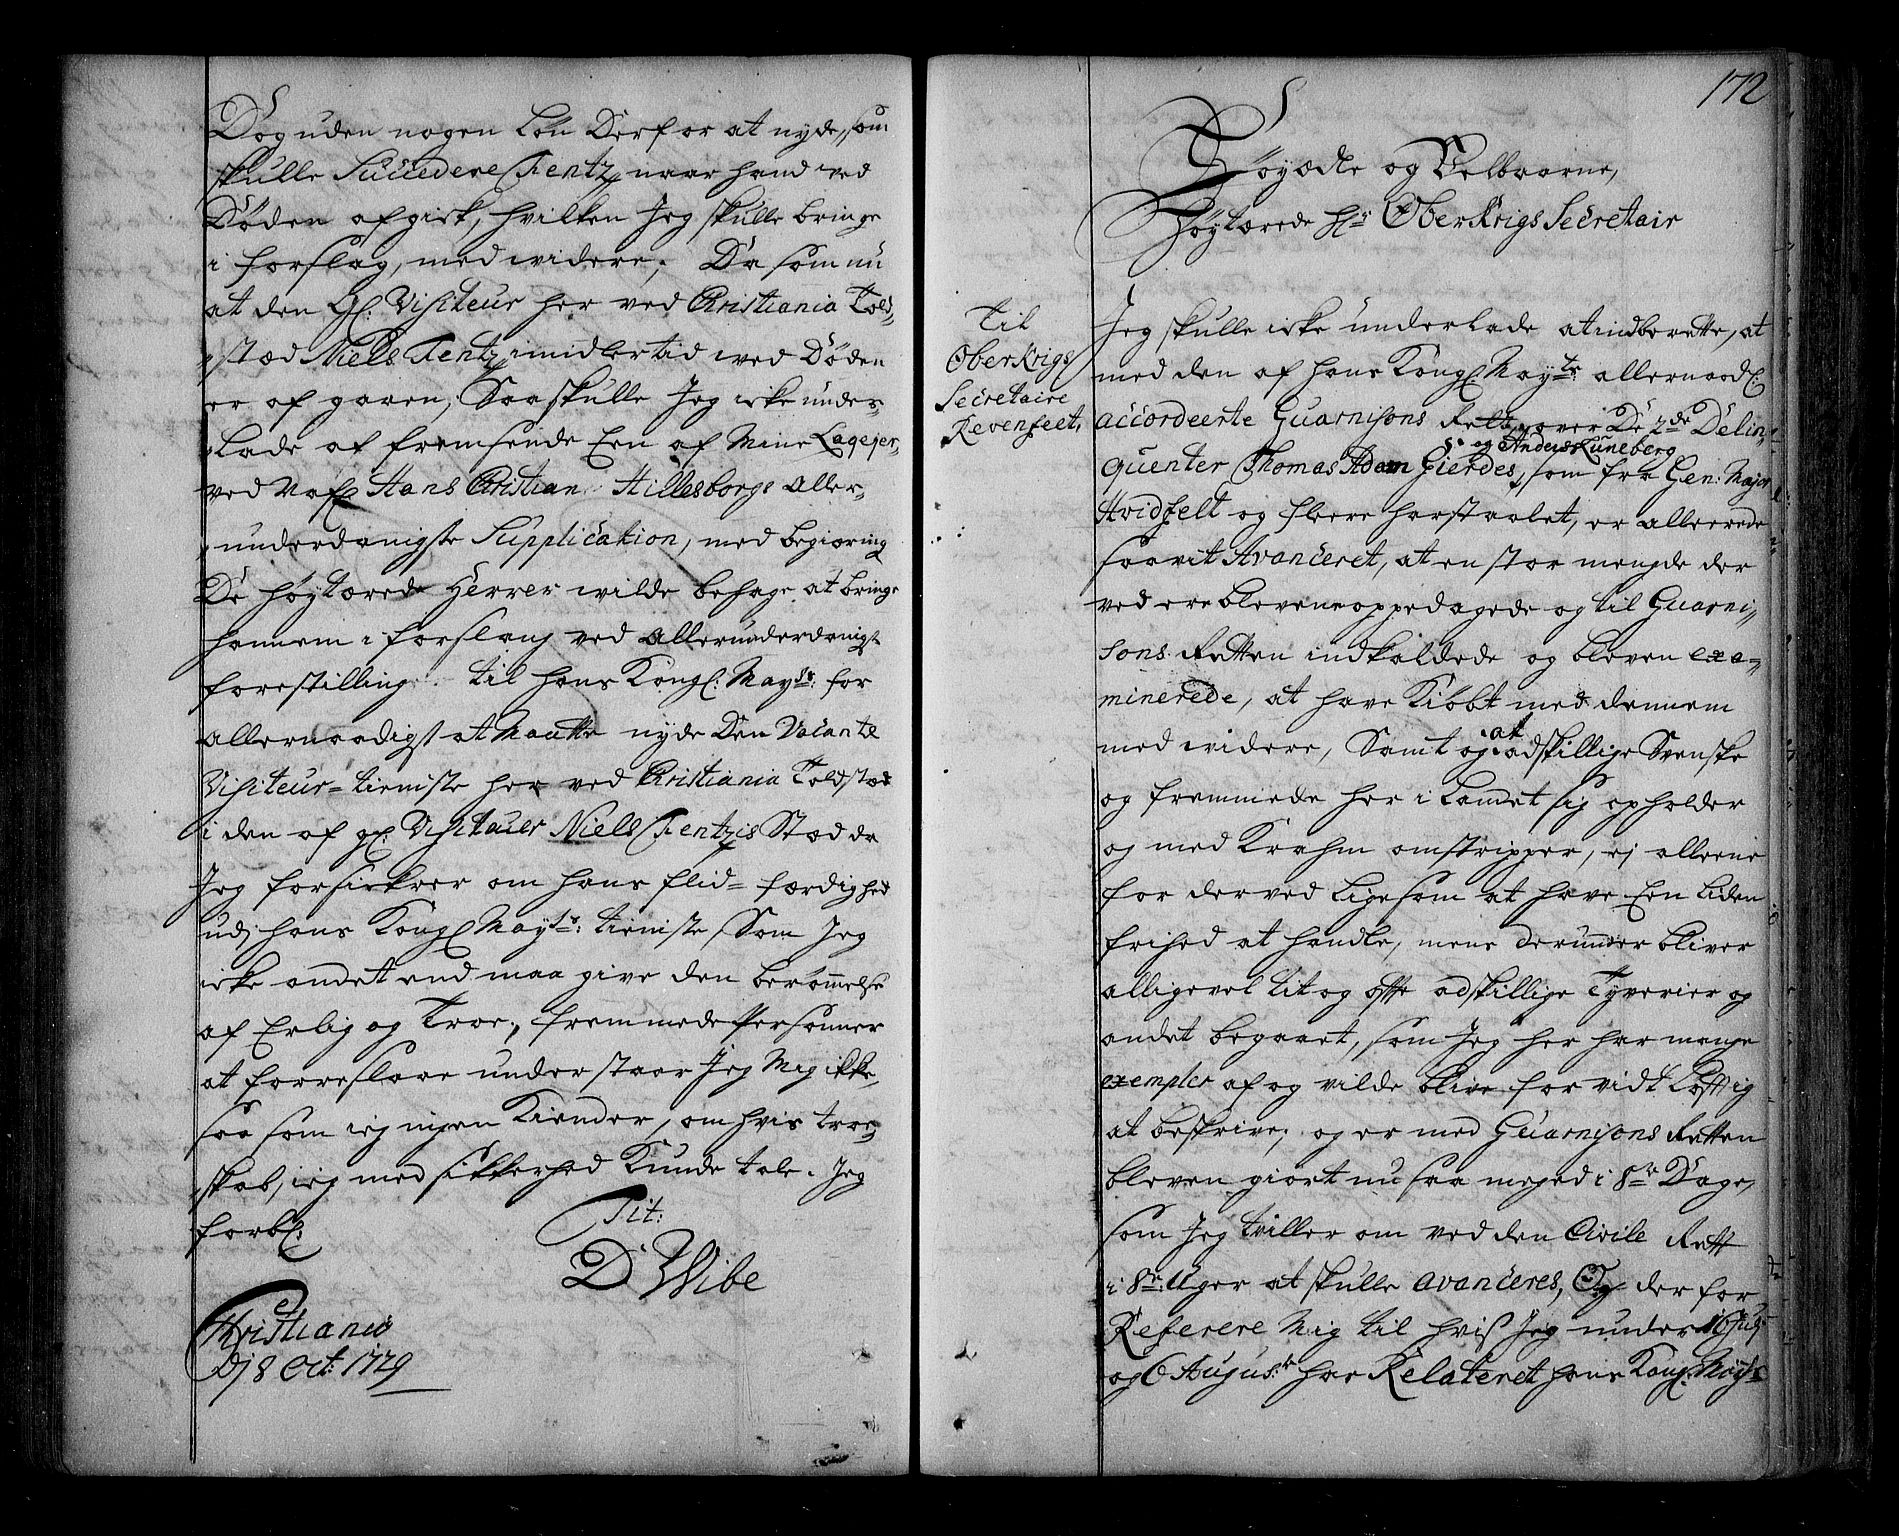 Dog uden nogen Løn Derfor at nyde, som
skulle Succedere Fentz, naar hand ved
Døden afgick, hvilken Jeg skulle bringe
i forslag, med widere; Da som nu
at den Gl: Visiteur her ved Christiania Told-
stæd Niels Fentz imidlertid wed Døden
er af gaaen, Saa skulle Jeg icke under-
lade af fremsende Een af Mine Laqejer,
ved Nafn Hans Christian Hillesborgs Aller-
underdanigste Supplication, med begiæring
De høytærede Herrer wilde behage at bringe
hannem i forslaug ved Allerunderdanigst
forestilling til hans Kongl: Mayts: for
allernaadigst at Maatte nyde Den Vacante
Visiteur-tieniste her ved Christiania Toldstæd
i den af gl: Visiteuer Niels Fentzis Stæd da
Jeg forsickrer om hans flid- færdighed
udj hans Kongl Mayts: tieniste, Som Jeg
icke andet end maa give den berømmelse
af Erlig og Troe, fremmede Persohner
at forreslaae understaar Jeg Mig ikke,
saa som iej ingen Kiender, om hvis troe-
skab, iej med sikkerhed Kunde tale. Jeg
forbl:
Tit:
D Wibe
Christiania
Dj 8 Oct: 1729
172
Høyædle og Velbaarne,
Høytærede Hr OberKrigs Secretair
Til
OberKrigs
Secretaire
Revenfeet,
Jeg skulle icke underlade at indberette, at
med den af hans Kongl Mayts: allernaadl:
accordeerte Guarnisons Rett, over De 2de Delin-
og Anders Luneberg
quenter Thomas Adam Gierdes, som fra Gen: Major
Hvidfelt og fleere har staalet, er allerede
saavit Avanceret, at en stor mengde der
ved ere blevene oppedagede og til Guarni-
sons Retten indkaldede og bleven exa-
minerede, at have Kiøbt med dennem
med widere, Samt og at adskillige Svenske
og fremmede her i Landet sig opholder
og med Krahm omstripper, ej alleene
for derved ligesom at have Een liden
frihed at handle, mens derunder bliver
alligevel tit og offte adskillige Tyverier og
andet begaaet, som Jeg her har mange
exempler af og vilde blive for vidtløfftig
at beskrive; og er med Guarnisons Retten
bleven giort nu saa meged i 8te Dage,
som Jeg tviller om ved den Civile Rett
i 8te Uger at skulle avanceres, Og derfor
Referere Mig til hvis Jeg under 16 Julj
og 6 August: har Relateret hans Kongl: Mayts